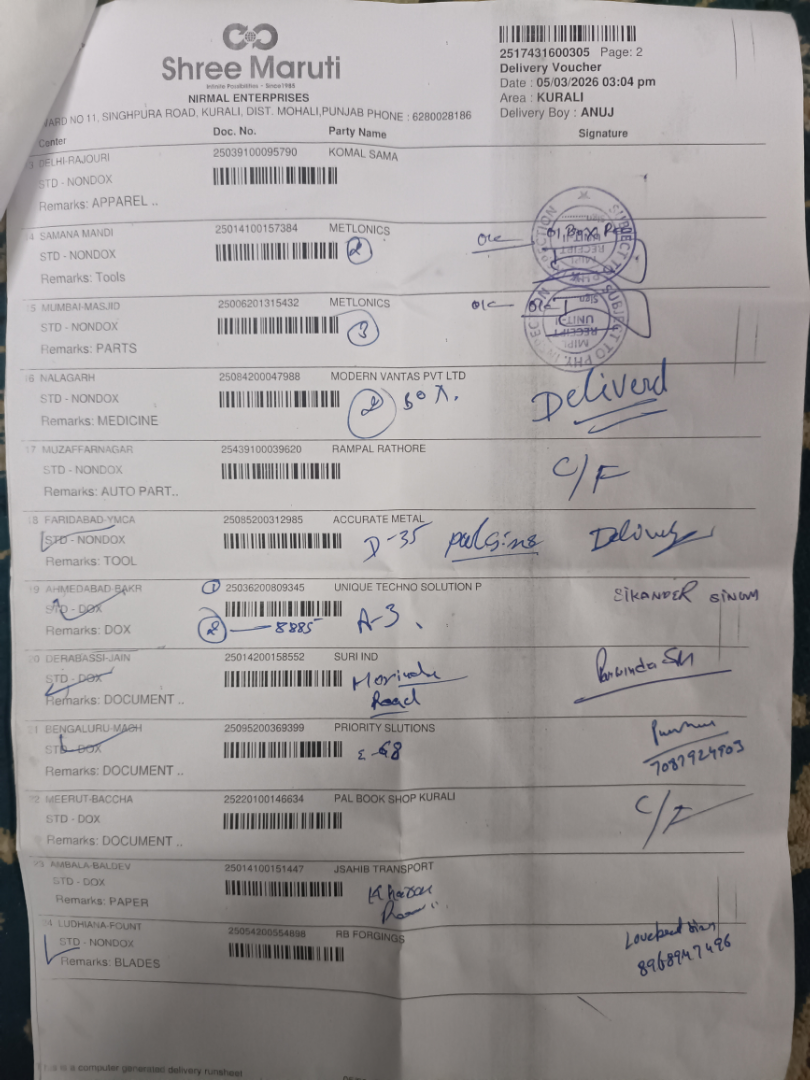 Shree Maruti
Infinite Possibilities - Since 1985
NIRMAL ENTERPRISES
WARD NO 11, SINGHPURA ROAD, KURALI, DIST. MOHALI,PUNJAB PHONE : 6280028186
2517431600305 Page: 2
Delivery Voucher
Date : 05/03/2026 03:04 pm
Area : KURALI
Delivery Boy : ANUJ
Center Doc. No. Party Name Signature
3 DELHI-RAJOURI 25039100095790 KOMAL SAMA
STD - NONDOX
Remarks: APPAREL ..
4 SAMANA MANDI 25014100157384 METLONICS
STD - NONDOX 2
Remarks: Tools
SUBJECT TO
RECEIPT
5 MUMBAI-MASJID 25006201315432 METLONICS
STD - NONDOX 3
Remarks: PARTS
SUBJECT TO PHY. IN
RECEIPT
MIPL
6 NALAGARH 25084200047988 MODERN VANTAS PVT LTD
STD - NONDOX 2 BOX. Deliverd
Remarks: MEDICINE
17 MUZAFFARNAGAR 25439100039620 RAMPAL RATHORE
STD - NONDOX C/F
Remarks: AUTO PART..
18 FARIDABAD-YMCA 25085200312985 ACCURATE METAL
STD - NONDOX D-35
Remarks: TOOL
19 AHMEDABAD-BAKR 1 25036200809345 UNIQUE TECHNO SOLUTION P SIKANDER SINGH
STD - DOX
Remarks: DOX 2 8885 A-3.
20 DERABASSI-JAIN 25014200158552 SURI IND
STD - DOX Morinda
Remarks: DOCUMENT .. Road
21 BENGALURU-MAGH 25095200369399 PRIORITY SLUTIONS
STD - DOX E-68
Remarks: DOCUMENT .. 7087924903
22 MEERUT-BACCHA 25220100146634 PAL BOOK SHOP KURALI
STD - DOX C/F
Remarks: DOCUMENT ..
23 AMBALA-BALDEV 25014100151447 JSAHIB TRANSPORT
STD - DOX
Remarks: PAPER
24 LUDHIANA-FOUNT 25054200554898 RB FORGINGS
STD - NONDOX
Remarks: BLADES 8968947496
This is a computer generated delivery runsheet